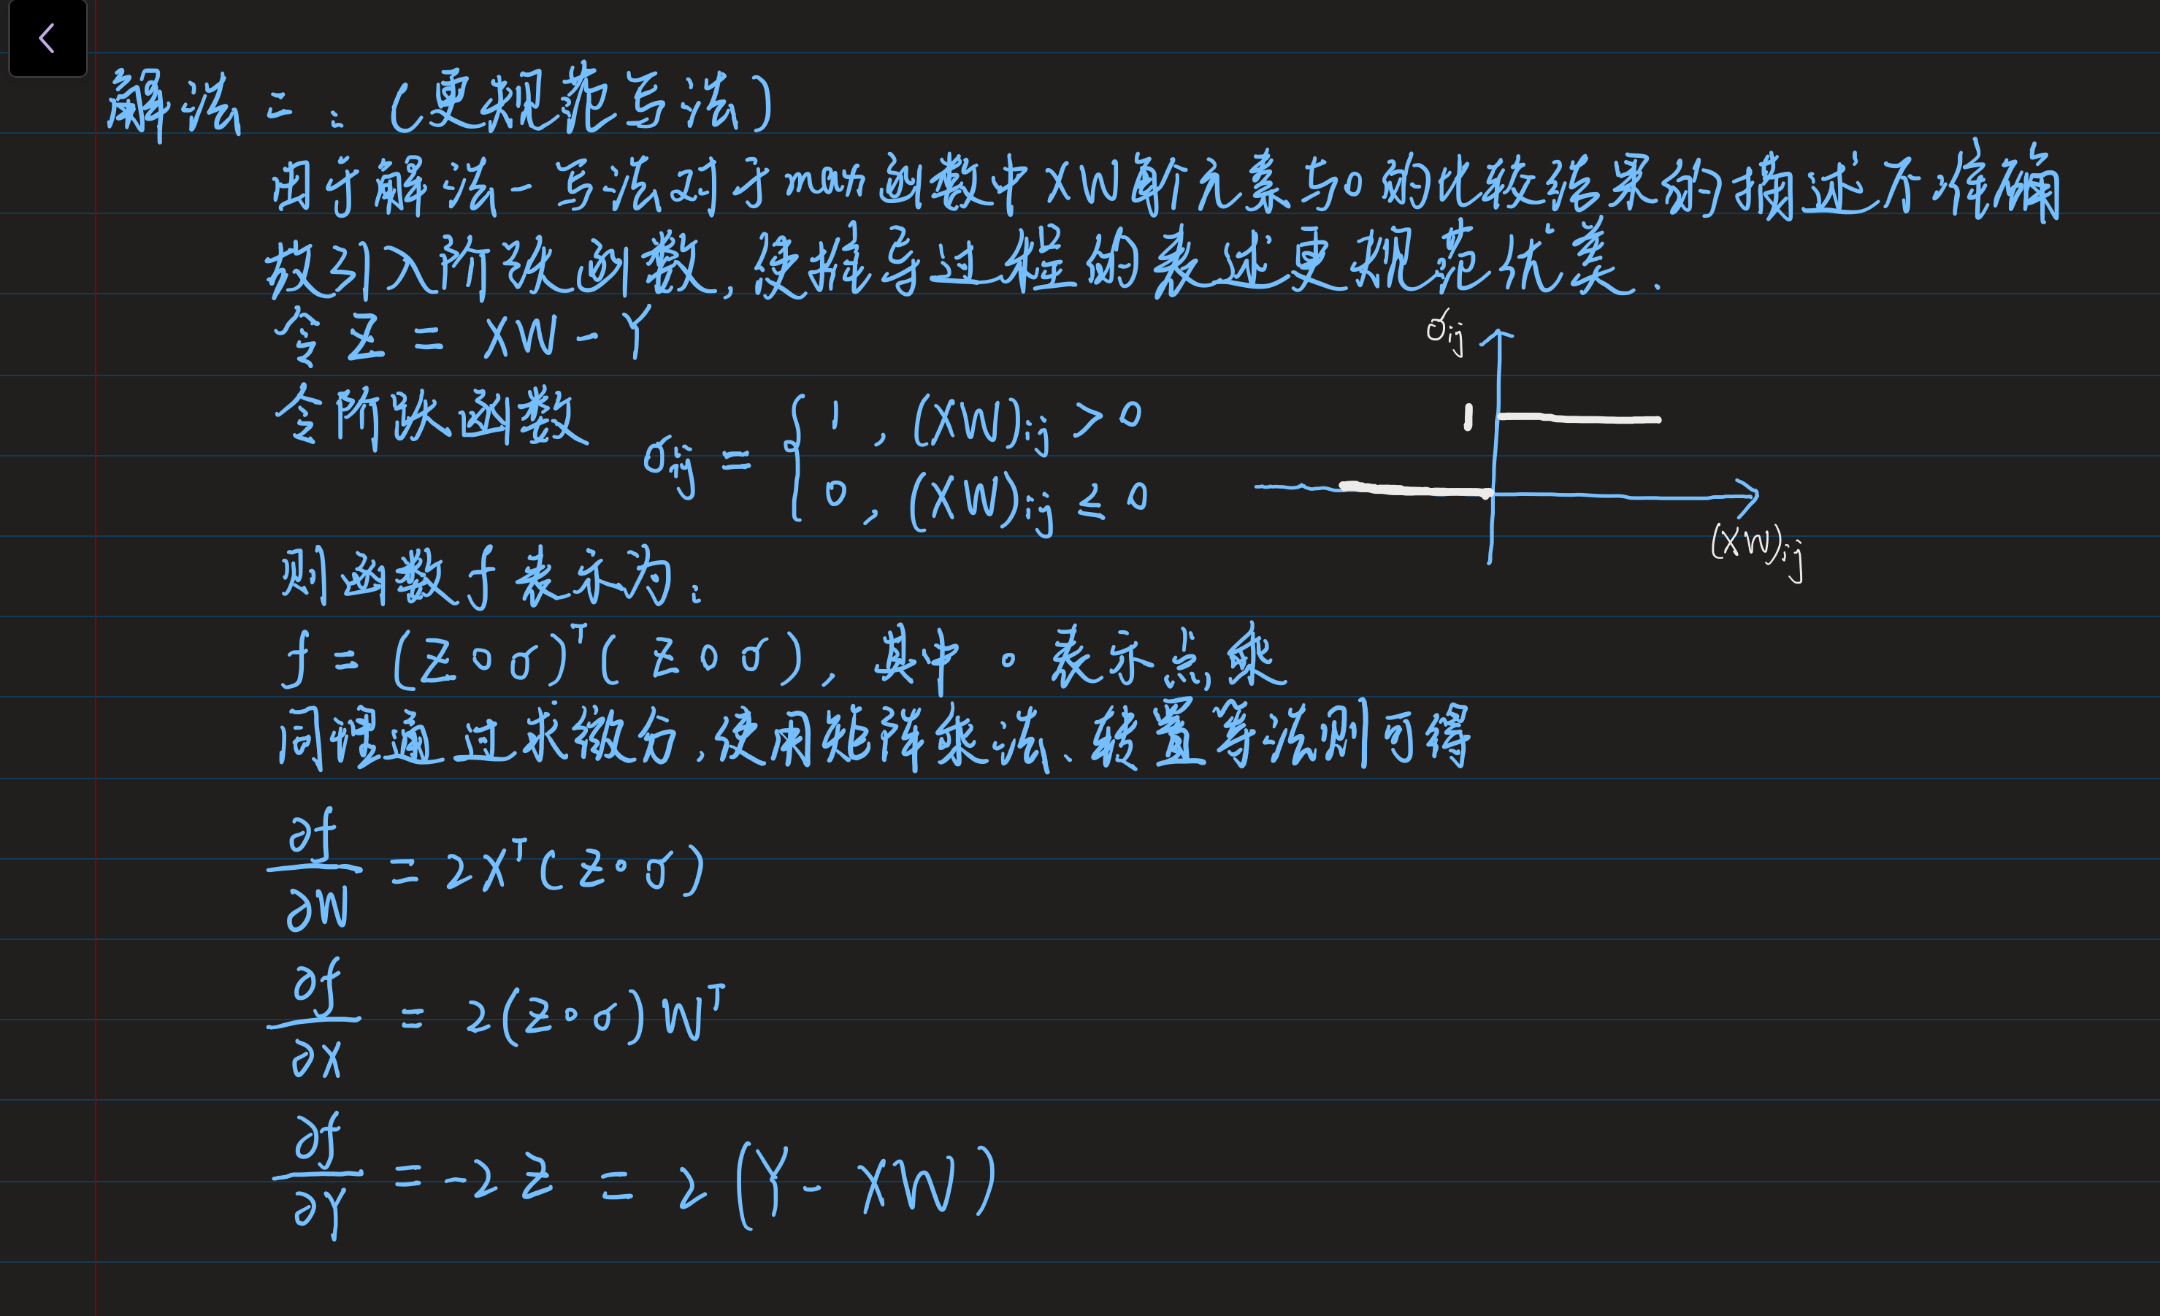 解法二：（更规范写法）
由于解法一写法对于max函数中XW每个元素与0的比较结果的描述不准确
故引入阶跃函数，使推导过程的表述更规范优美．
令 Z = XW - Y
令阶跃函数
σij = { 1 , (XW)ij > 0
0 , (XW)ij ≤ 0
σij
1
(XW)ij
则函数 f 表示为：
f = (Z∘σ)ᵀ(Z∘σ)，其中 ∘ 表示点乘
同理通过求微分，使用矩阵乘法、转置等法则可得
∂f/∂W = 2Xᵀ(Z∘σ)
∂f/∂X = 2(Z∘σ)Wᵀ
∂f/∂Y = -2Z = 2(Y - XW)